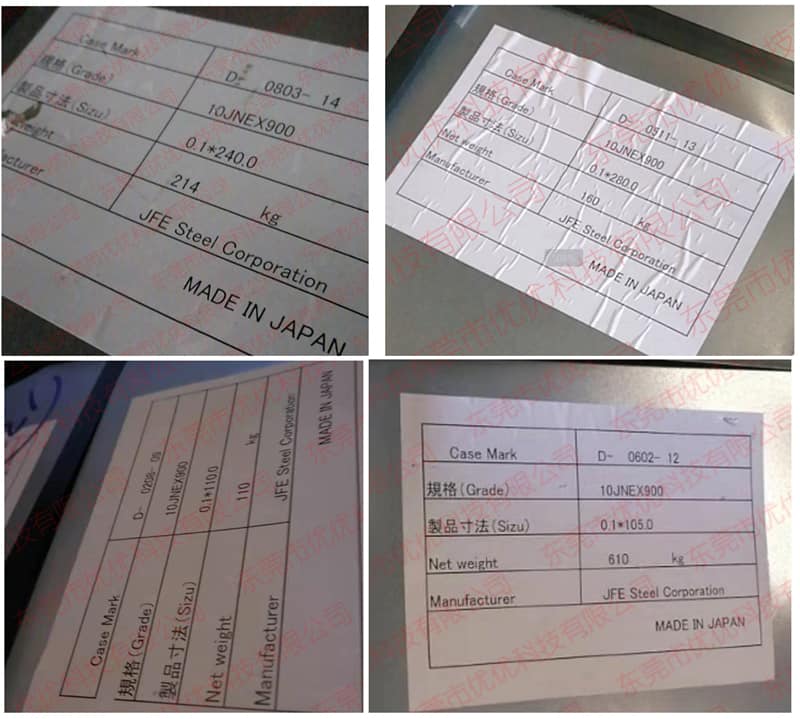 Case Mark D- 0803- 14
規格(Grade) 10JNEX900
製品寸法(Sizu) 0.1*240.0
weight 214 kg
JFE Steel Corporation
MADE IN JAPAN
Case Mark D- 0511- 13
規格(Grade) 10JNEX900
製品寸法(Sizu) 0.1*280.0
Net weight 160 kg
Manufacturer JFE Steel Corporation
MADE IN JAPAN
Case Mark D- 0208- 09
規格(Grade) 10JNEX900
製品寸法(Sizu) 0.1*110.0
Net weight 110 kg
Manufacturer JFE Steel Corporation
MADE IN JAPAN
Case Mark D- 0602- 12
規格(Grade) 10JNEX900
製品寸法(Sizu) 0.1*105.0
Net weight 610 kg
Manufacturer JFE Steel Corporation
MADE IN JAPAN
东莞市优优科技有限公司